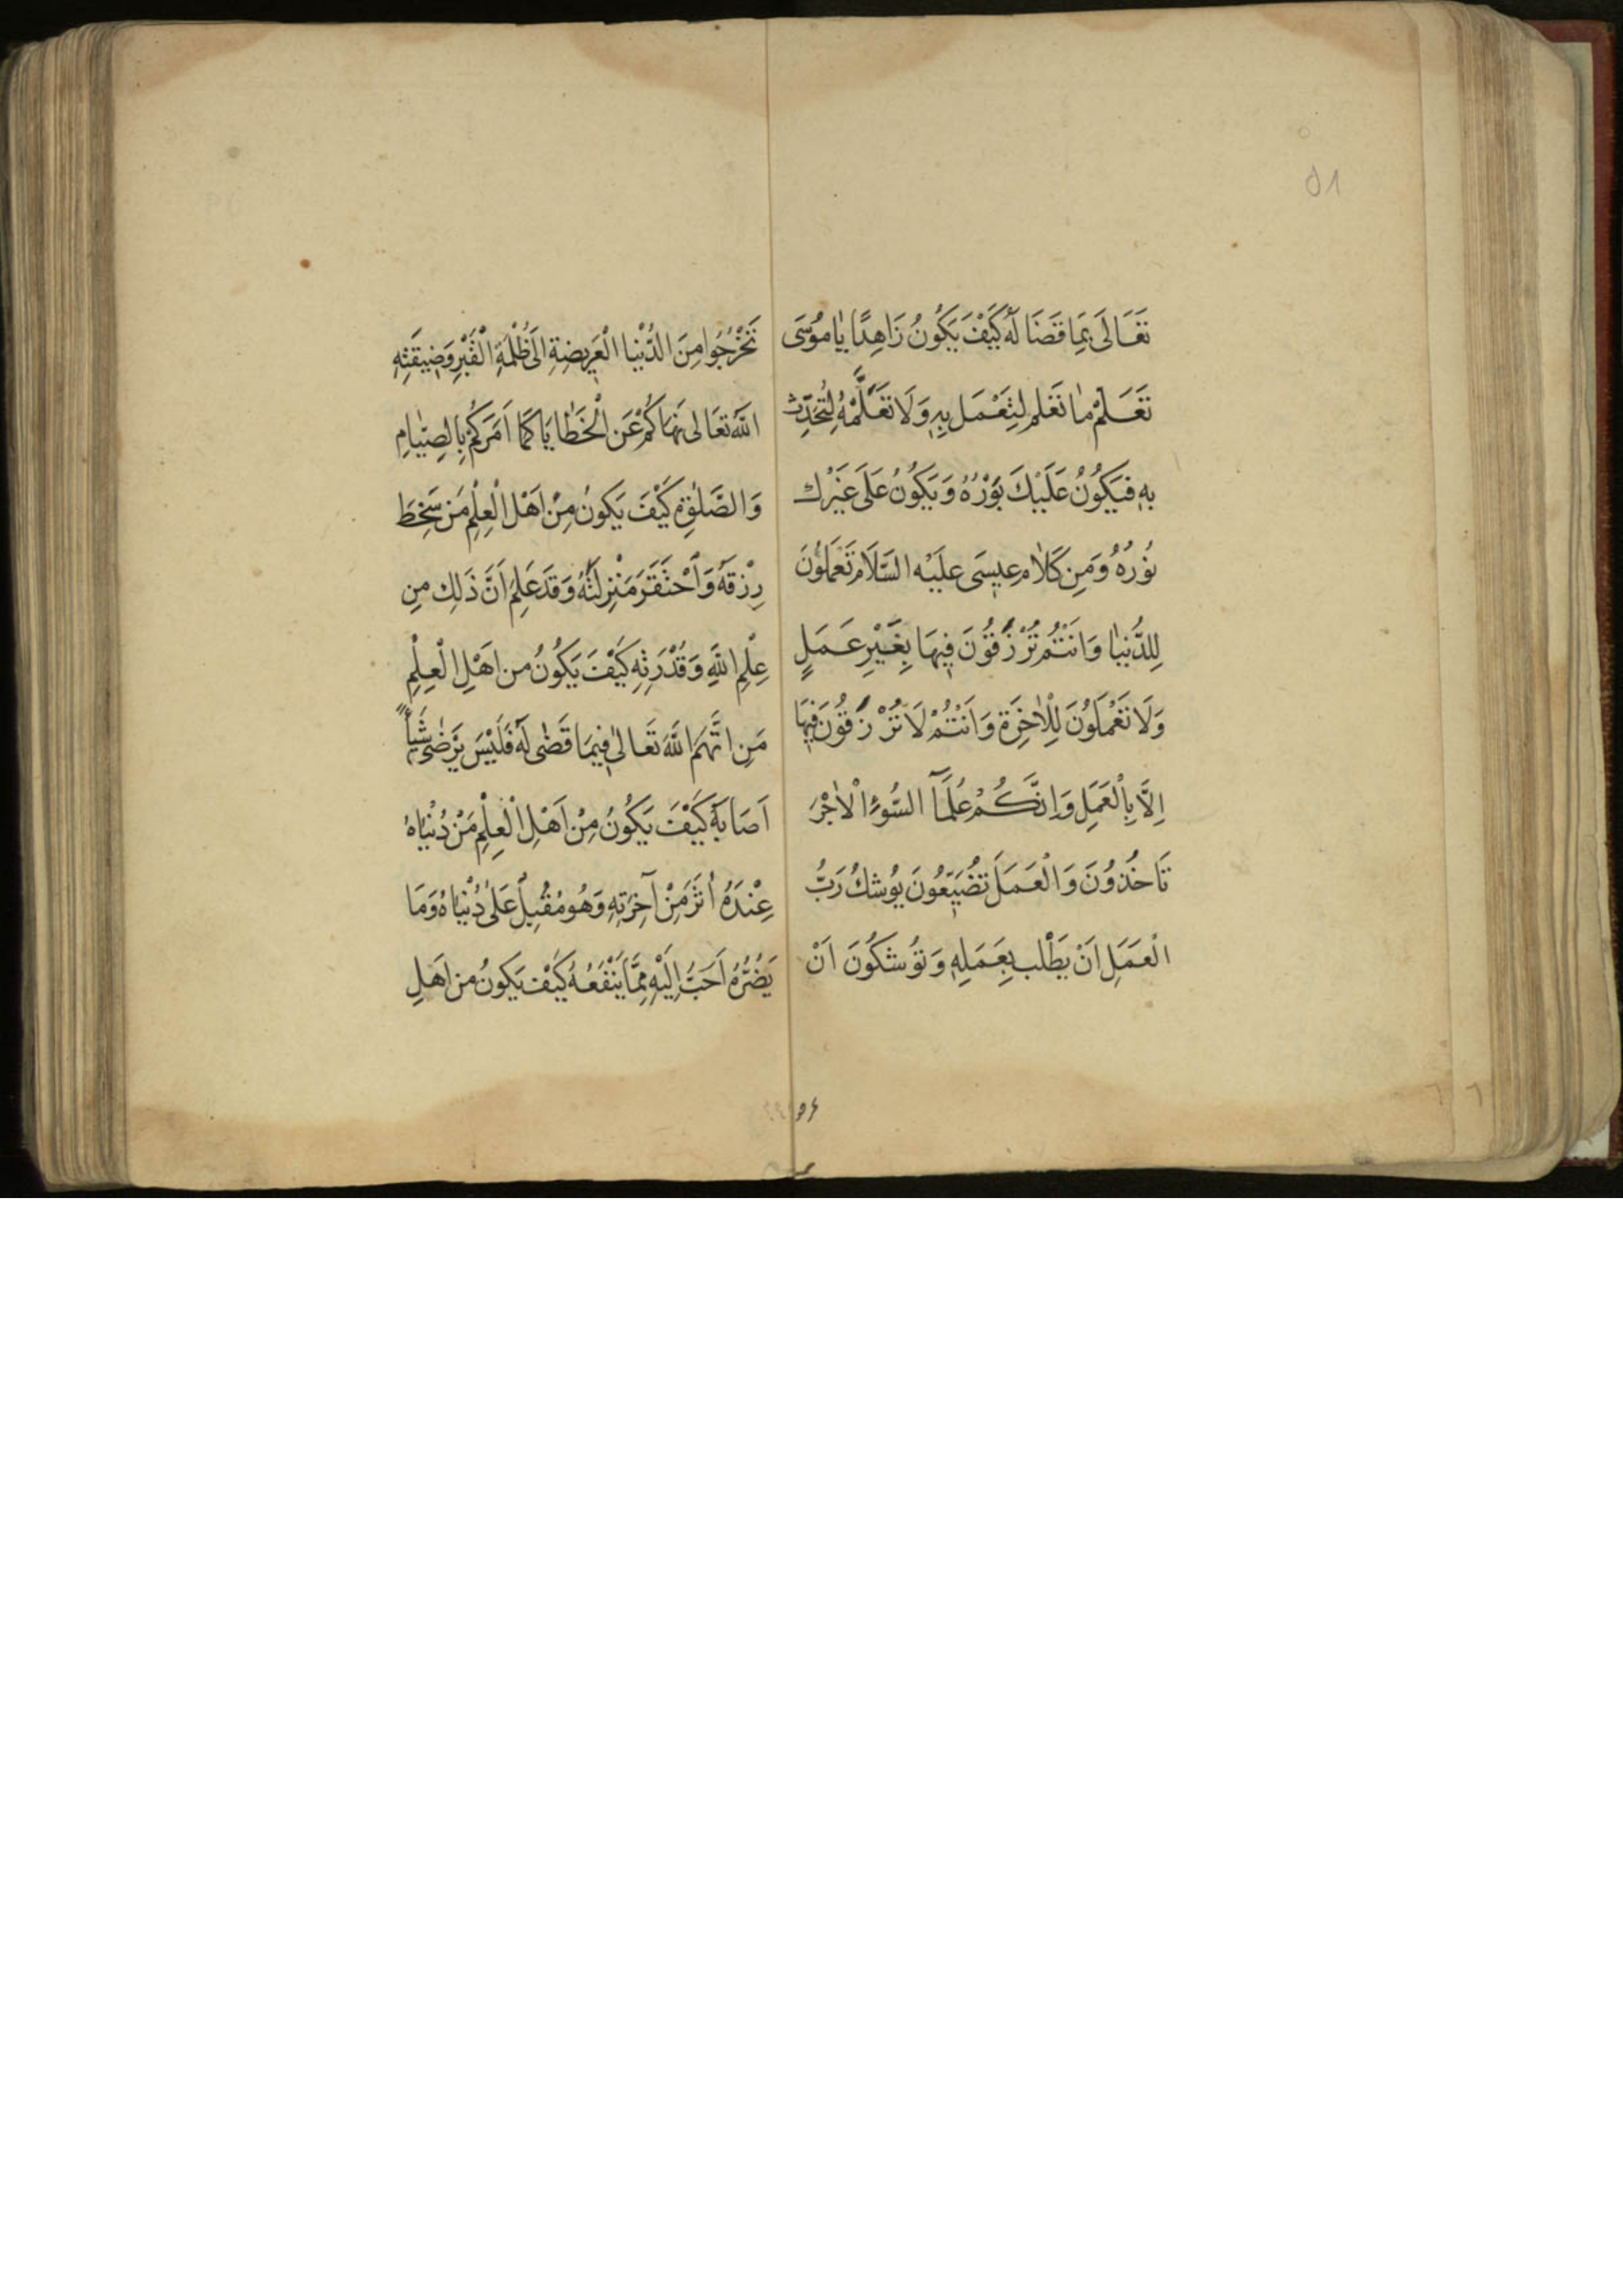 ٥١
تَعَالَى بِمَا قَضَا لَهُ كَيْفَ يَكُونُ زَاهِدًا يَا مُوسَى
تَعَلَّمْ مَا تَعْلَم لِتَعْمَلَ بِهِ وَلَا تَعَلَّمْهُ لِتُحَدِّث
بِهِ فَيَكُونُ عَلَيْكَ بَوْرُهُ وَيَكُونُ عَلَى غَيْرِك
نُورُهُ وَمِن كَلَامِ عِيسَى عَلَيْهِ السَّلَام تَعْمَلُونَ
لِلدُّنْيَا وَانْتُمْ تُرْزَقُونَ فِيهَا بِغَيْرِ عَمَلٍ
وَلَا تَعْمَلُونَ لِلْاخِرَةِ وَانْتُمْ لَا تُرْزَقُونَ فِيهَا
اِلَّا بِالْعَمَلِ وَاِنَّكُمْ عُلَمَآ السُّوءِ الْاجْرَ
تَاخُذُونَ وَالْعَمَلَ تُضَيِّعُونَ يُوشِكُ رَبُّ
الْعَمَلِ اَنْ يَطْلب بِعَمَلِهِ وَتُوشكُونَ اَنْ
تَخْرُجُوا مِنَ الدُّنْيَا الْعَرِيضَةِ اِلَى ظُلْمَةِ الْقَبْرِ وَضِيقَتِهِ
اللهُ تَعَالى نَهَاكُمْ عَنِ الْخَطَايَا كَمَا اَمَرَكُمْ بِالصِّيَامِ
وَالصَّلوةِ كَيْفَ يَكُونُ مِنْ اَهْلِ الْعِلْمِ مَنْ سَخِطَ
رِزْقَهُ وَاَحْتَقَرَ مَنْزِلَتَهُ وَقَدْ عَلِمَ اَنَّ ذَلِكَ مِن
عِلْمِ اللهِ وَقُدْرَتِهِ كَيْفَ يَكُونُ من اَهْلِ الْعِلْمِ
مَنِ اتَّهَمَ اللهَ تَعَالى فِيمَا قَضى لَهُ فَلَيْسَ يَرْضى شَيْأً
اَصَابَهُ كَيْفَ يَكُونُ مِنْ اَهْلِ الْعِلْمِ مَنْ دُنْيَاهُ
عِنْدَهُ اثَرُ مِنْ آخِرَتِهِ وَهُوَ مُقْبِلٌ عَلى دُنْيَاهُ وَمَا
يَضُرُّهُ اَحَبُّ اِلَيْهِ مِمَّا يَنْفَعُهُ كَيْفَ يَكُونُ من اَهْلِ